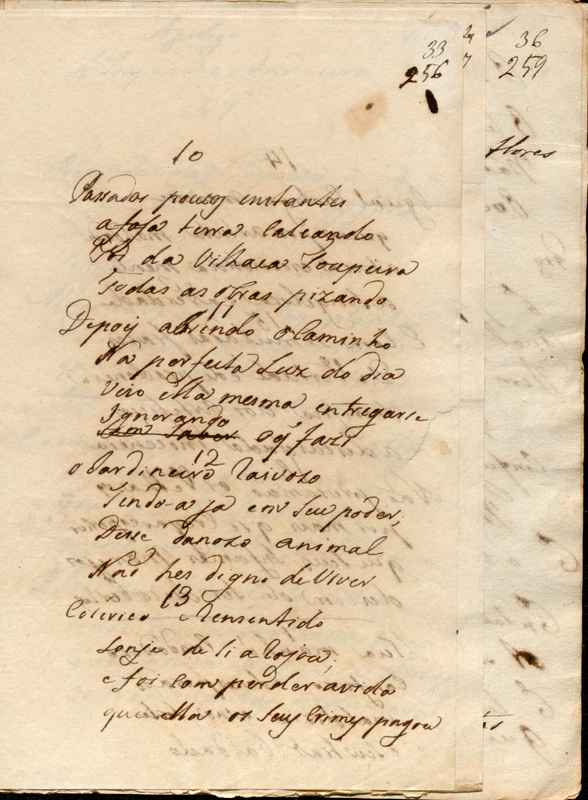 33
256
36
259
flores
10
Passados poucoz instantes
a fofa terra calcando
Foi da Vilhaca Toupeira
Todas as obras pizando
11
Depoiz abrindo o caminho
Na perfeita Luz do dia
Veio ella mesma entregarse
Ignorando
Sem Saber oq' fazi
12
o Jardineiro raivozo
Tendo-a ja em Seu poder,
Disse danozo animal
Naõ hes digno de Viver
13
Colerico e Rensentido
Longe de Si a Lojou,
e foi com perder avida
que ella os Seuz Crimez pagou